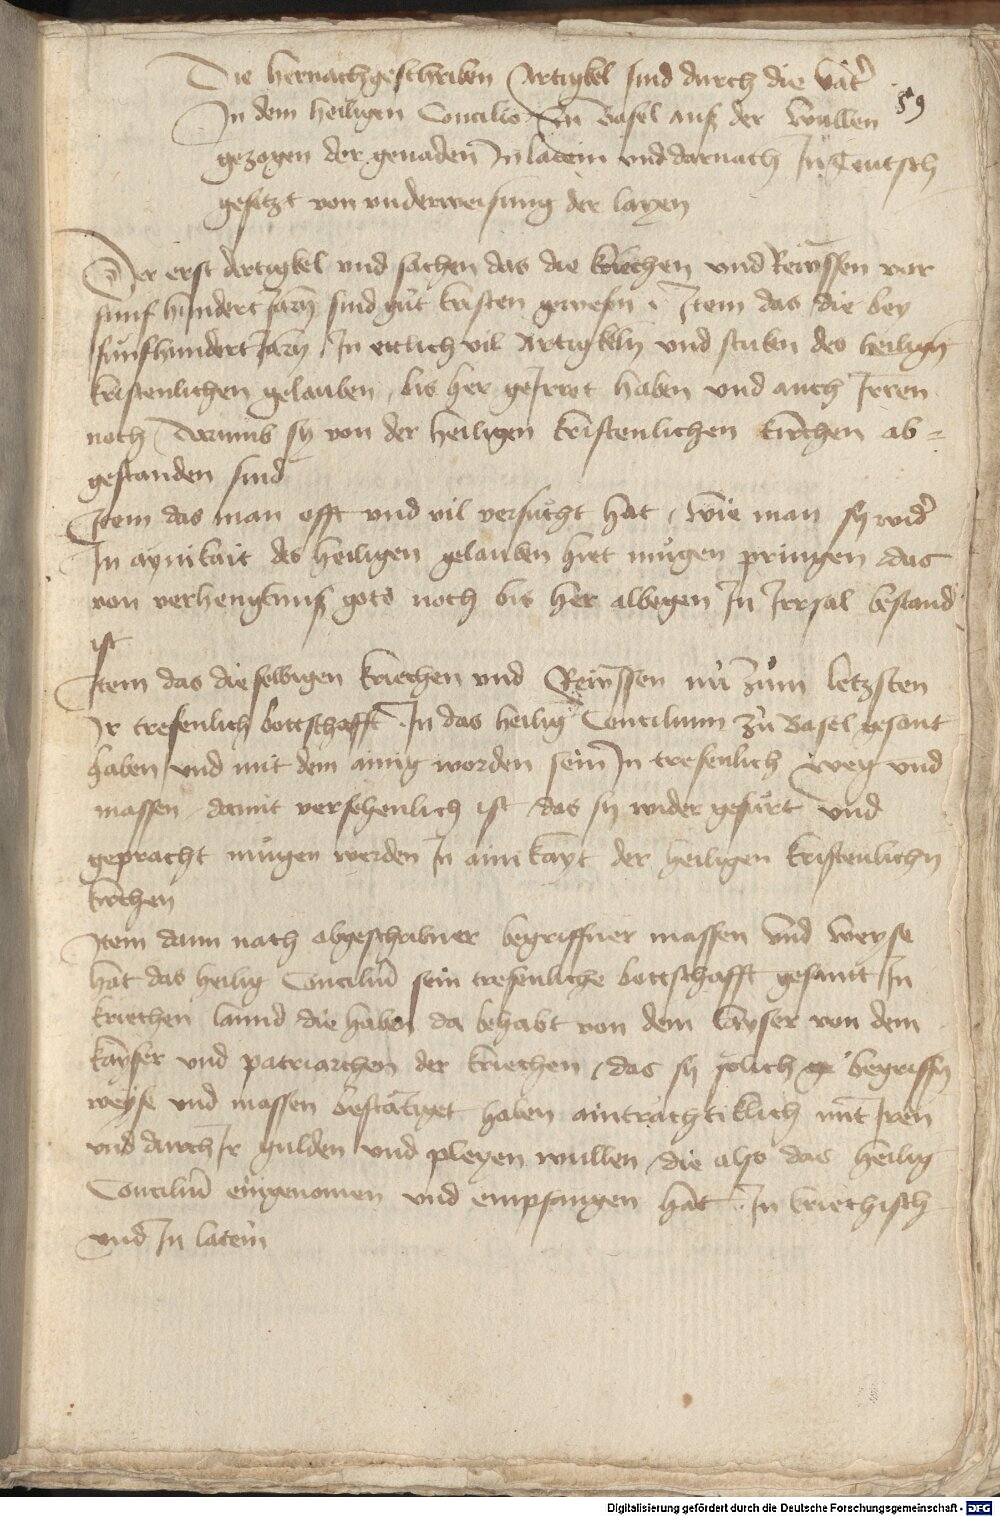 Die hernachgeschriben Artigkel sind durch die våt͛
59
In dem heiligen Concilio zu Basel aus der wullen
gezogen der genaden In latein vnd darnach In Teutsch
gesetzt von vnderweisung der layen
Der erst Artigkel vnd sachen das die kriechen vnd Rewssen vor
funf hundert Jarn sind gůt kristen gewesen . Item das die bey
fünfhundert Jarn In ettlich vil Artigkeln vnd stuken des heilign
kristenlichen gelauben bis her geJrret haben vnd auch Jrren
noch darumb sy von der heiligen kristenlichen kirchen ab=
gestanden sind
Item das man offt vnd vil versůcht hat, wie man sy wid͛
In aynikait des heiligen gelauben hiet můgen pringen das
von verhengknuß gots noch bis her albegen In Irrsal bestand
ist
Item das die selbigen kriechen vnd Rewssen nů zům letzsten
Ir trefenlich bottschafft In das heilig Concilium zů Basel gesant
haben vnd mit dem ainig worden sein In trefenlich weg vnd
massen damit versehenlich ist das sy wider gefürt vnd
gepracht můgen werden In ainikayt der heiligen kristenlichn
kirchen
Item dann nach abgeschribner begriffner massen vnd weyse
hat das heilig Conciliū sein trefenliche bottschafft gesannt In
kriechen lannd die haben da behabt von dem kayser von dem
kayser vnd patriarchen der kriechen, das sy solich begriffn
weyse vnd massen bestätiget haben ainträchtiklich mit Iren
vnd durch Ir gulden vnd pleyen wullen die also das heilig
Conciliū eingenomen vnd empfangen hat In kriechisch
vnd In latein
Digitalisierung gefördert durch die Deutsche Forschungsgemeinschaft - DFG